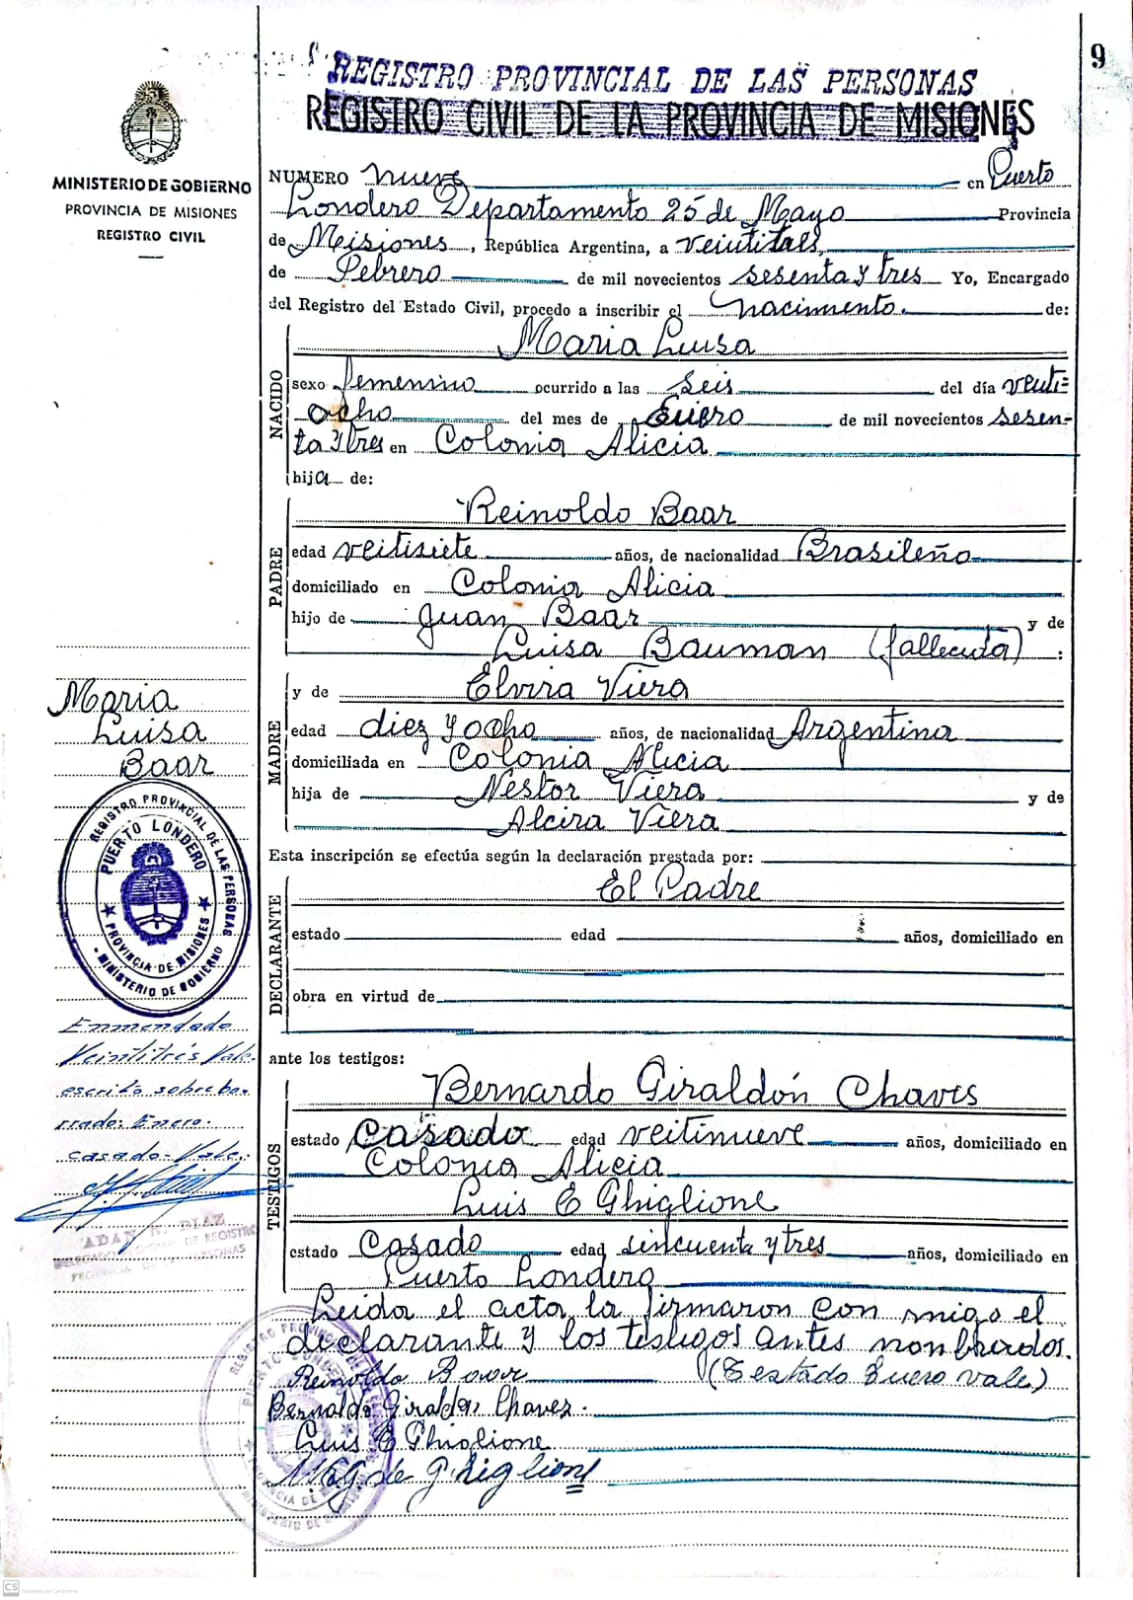 9
REGISTRO PROVINCIAL DE LAS PERSONAS
REGISTRO CIVIL DE LA PROVINCIA DE MISIONES
MINISTERIO DE GOBIERNO
PROVINCIA DE MISIONES
REGISTRO CIVIL
NUMERO nueve en Puerto
Londero Departamento 25 de Mayo Provincia
de Misiones, República Argentina, a veintitres
de Febrero de mil novecientos sesenta y tres Yo, Encargado
del Registro del Estado Civil, procedo a inscribir el nacimiento. de:
NACIDO
Maria Luisa
sexo femenino ocurrido a las seis del día venti=
ocho del mes de Enero de mil novecientos sesen-
ta y tres en Colonia Alicia
hija de:
PADRE
Reinoldo Baar
edad veitisiete años, de nacionalidad Brasileño
domiciliado en Colonia Alicia
hijo de Juan Baar y de
Luisa Bauman (fallecida) :
MADRE
y de Elvira Viera
edad diez y ocho años, de nacionalidad Argentina
domiciliada en Colonia Alicia
hija de Nestor Viera y de
Alcira Viera
Maria
Luisa
Baar
REGISTRO PROVINCIAL DE LAS PERSONAS
PUERTO LONDERO
PROVINCIA DE MISIONES
MINISTERIO DE GOBIERNO
Esta inscripción se efectúa según la declaración prestada por:
DECLARANTE
El Padre
estado edad años, domiciliado en
obra en virtud de
Enmendado
Veintitrés Vale.
escrito sobre bo-
rrado: Enero.
casado-Vale.
ADAN N. DIAZ
ante los testigos:
TESTIGOS
Bernardo Giraldón Chaves
estado Casado edad veitinueve años, domiciliado en
Colonia Alicia
Luis E Ghiglione
estado Casado edad sincuenta y tres años, domiciliado en
Puerto Londero
Leida el acta la firmaron con migo el
declarante y los testigos antes nombrados.
Reinoldo Baar
Bernaldo Giraldon Chavez.
Luis E Ghiglione
de Ghiglione
CS